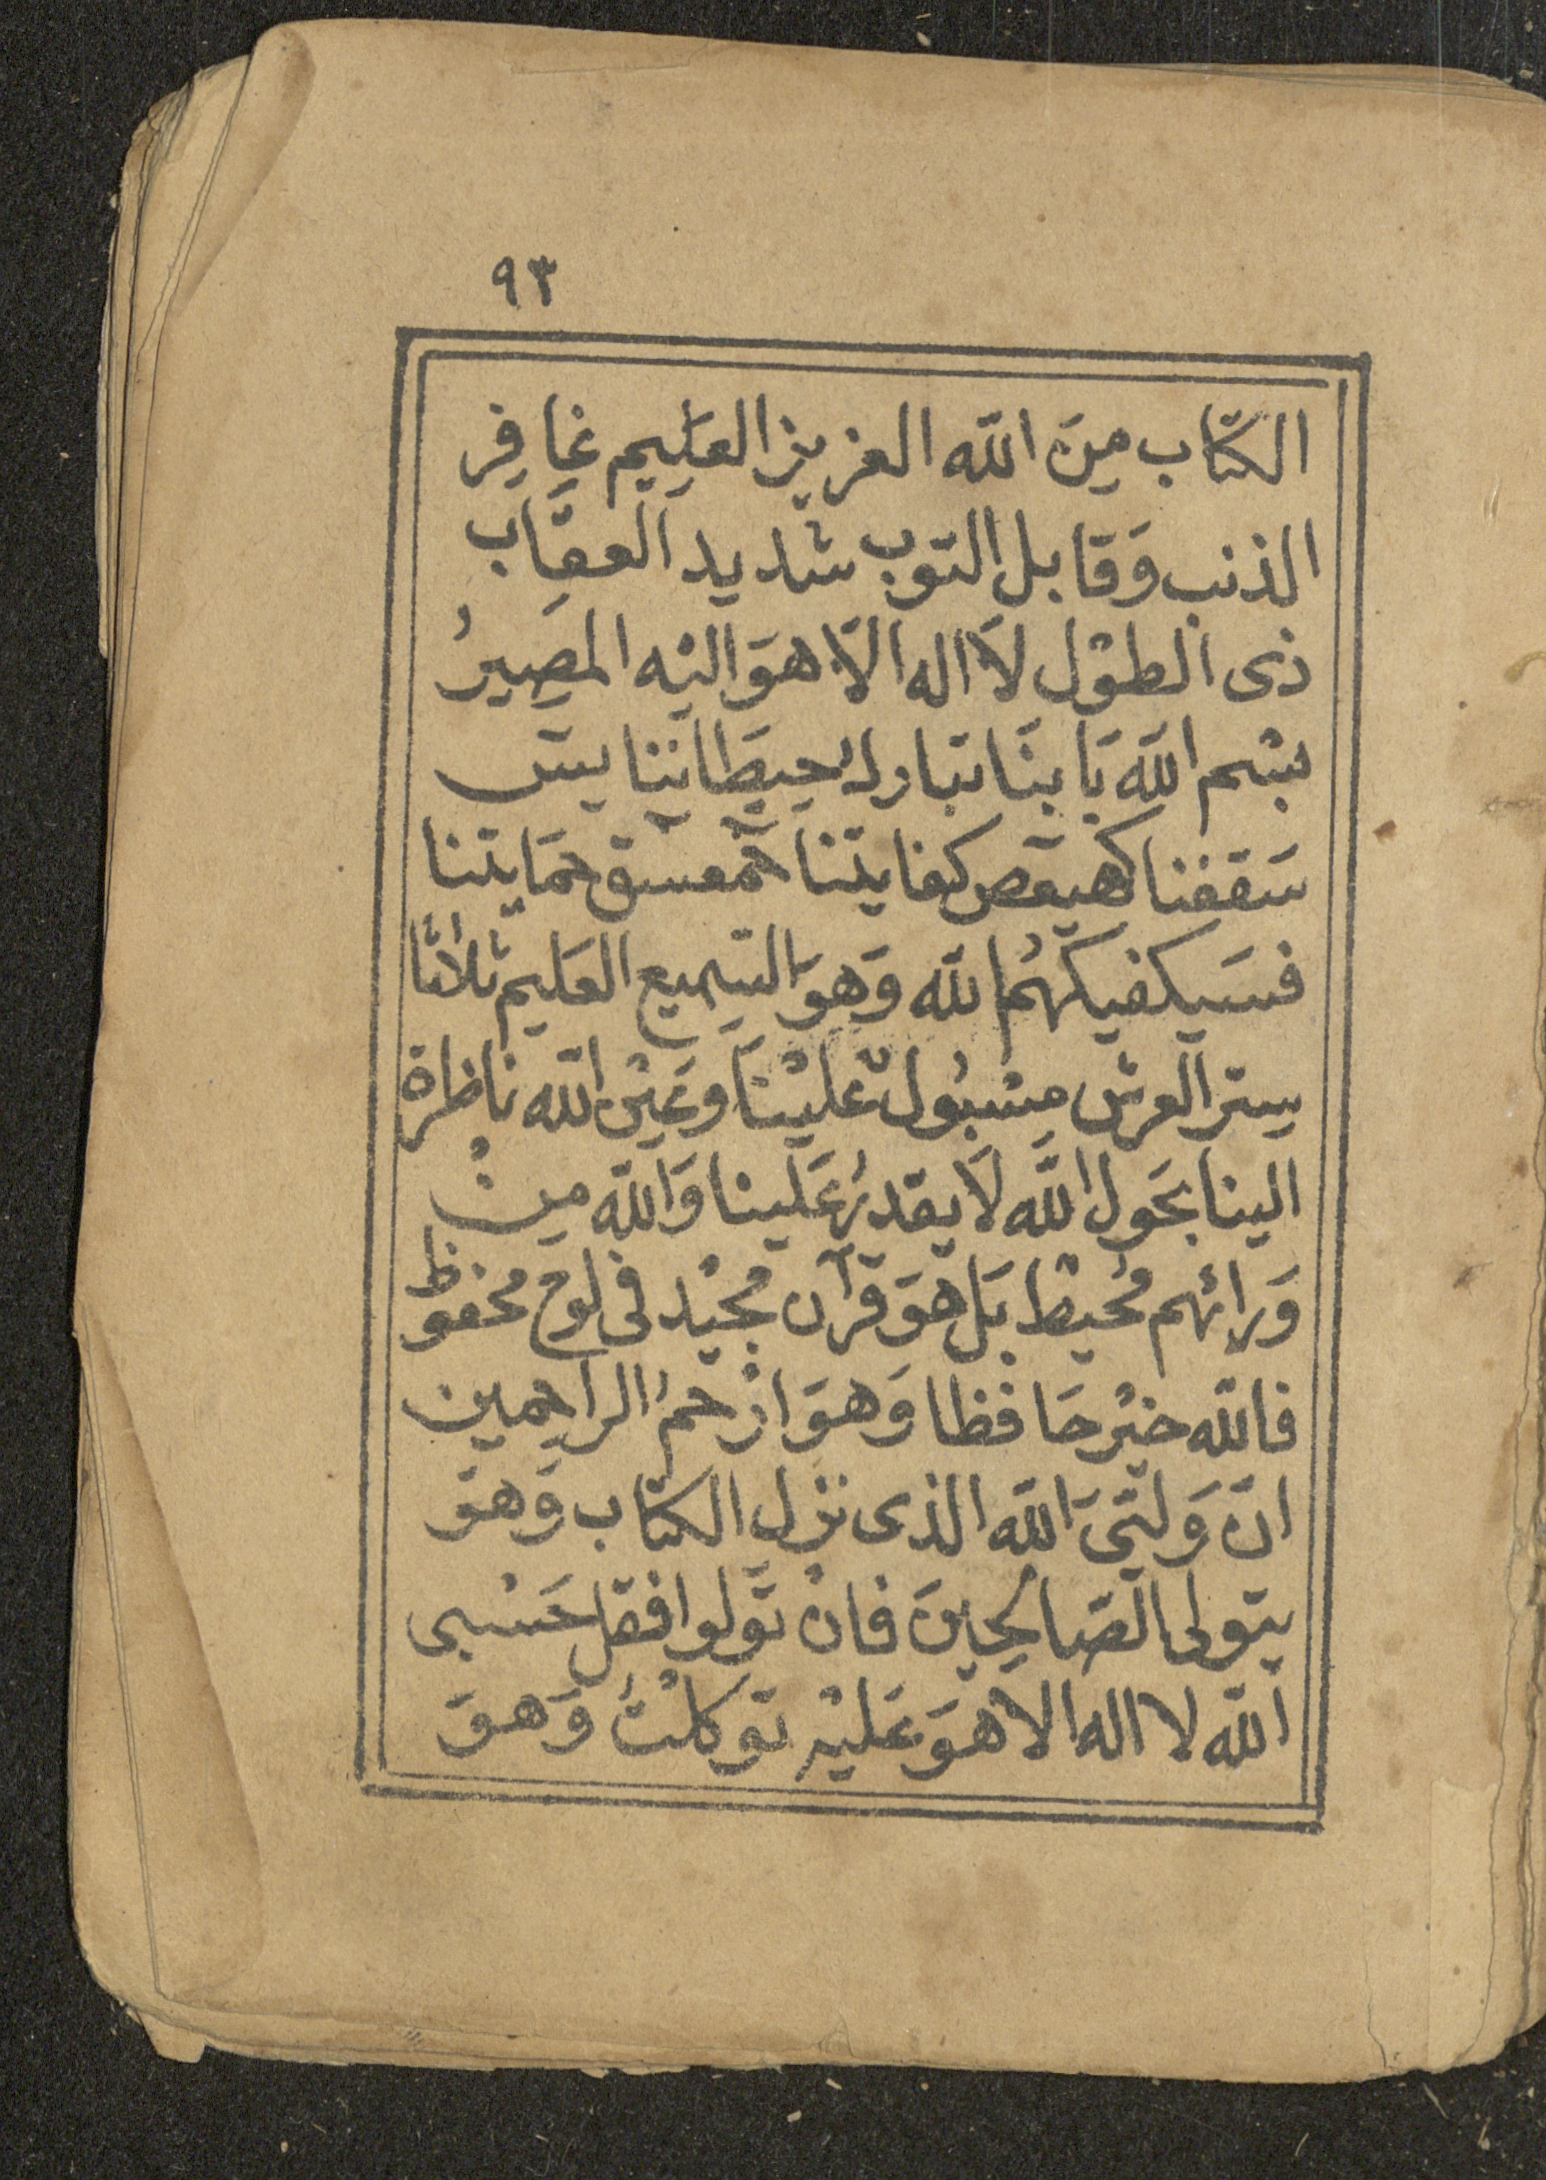 ٩٣
الكتاب مِنَ الله العزيز العَلِيم غَافِرِ
الذنب وَقابل التوب شديد العِقَاب
ذى الطَوْل لَا اله الّا هوَ اليْه المَصِيرُ
بسْم اللّهِ بَابنَا تبارك حِيطَاننا يسٓ
سَقفنا كهيعٓص كفايتنا حٓمعٓسٓق حمَايتنا
فسَيكفيكهُم الله وَهوَ السَمِيع العَليم ثلاثًا
ستر العرش مسْبُولٌ عَليْنَا وَعَيْن الله ناظرة
الينا بحَول اللَّه لَا يقدرُ عَلينا وَاللّه مِنْ
وَرائهم مُحيْط بَل هوَ قرآن مجيْد فى لوح محفوظ
فاللّه خيْر حَافظا وَهوَ ارْحمُ الراحِمين
انّ وَلِيّىَ اللّه الذى نزل الكتاب وَهوَ
يتولى الصّالِحِينَ فانْ تَولوا فقل حَسْبى
الله لا اله الا هوَ عَليْهِ توكلْتُ وَهوَ